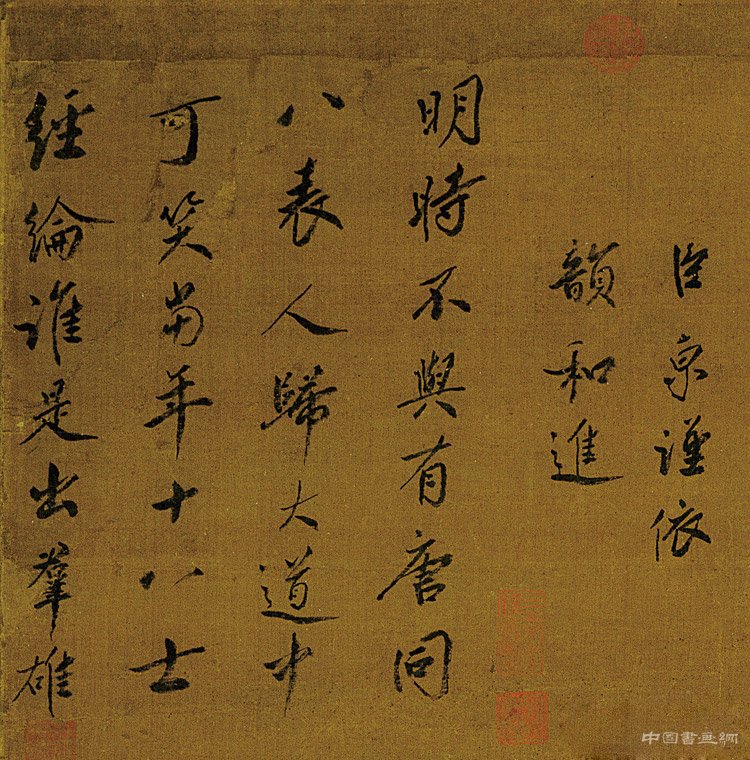 臣京謹依
韻和進
明時不與有唐同
八表人歸大道中
可笑當年十八士
經綸誰是出羣雄
中国書画網